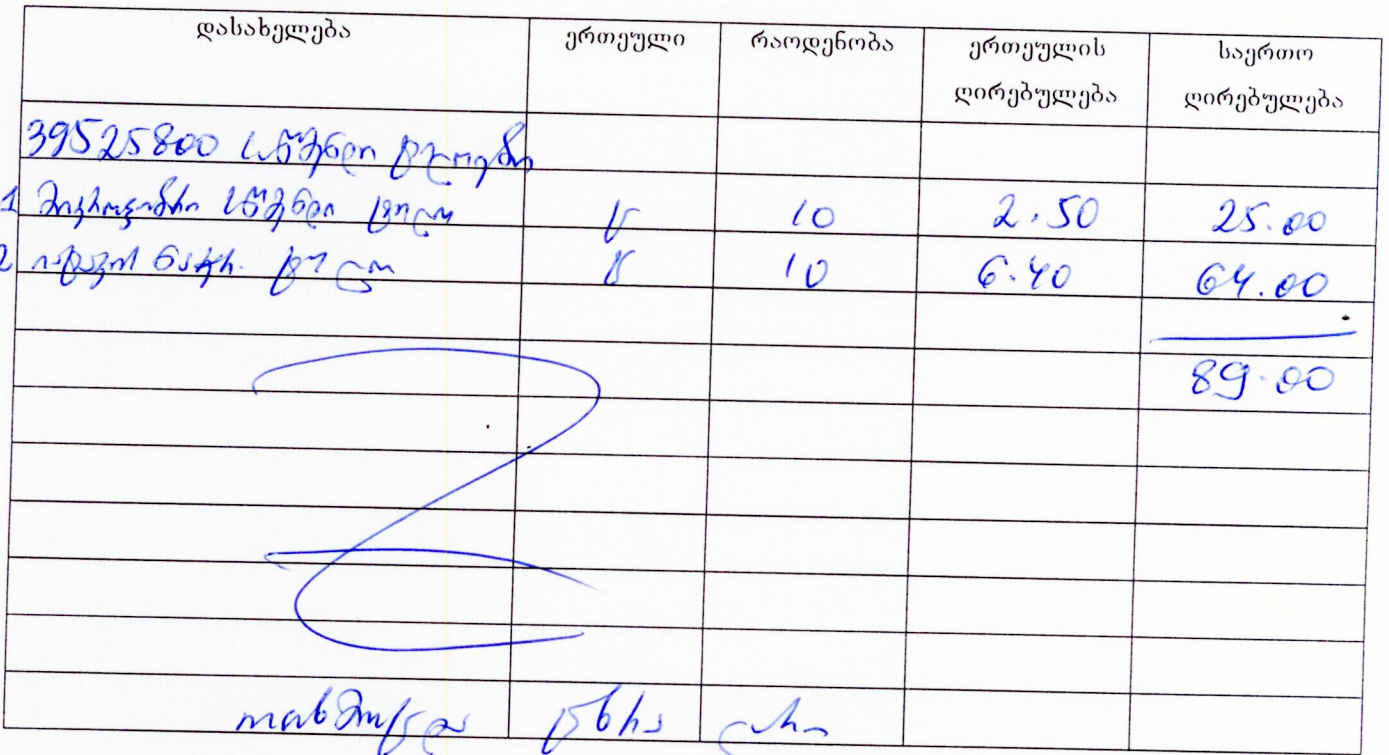 დასახელება ერთეული რაოდენობა ერთეულის ღირებულება საერთო ღირებულება
39525800 საწმენდი ტილოები
1 მიკროფიბრი საწმენდი ტილო ც 10 2.50 25.00
2 იატაკის ნაჭრ. ტილო ც 10 6.40 64.00
89.00
ოთხმოცდა ცხრა ლარი